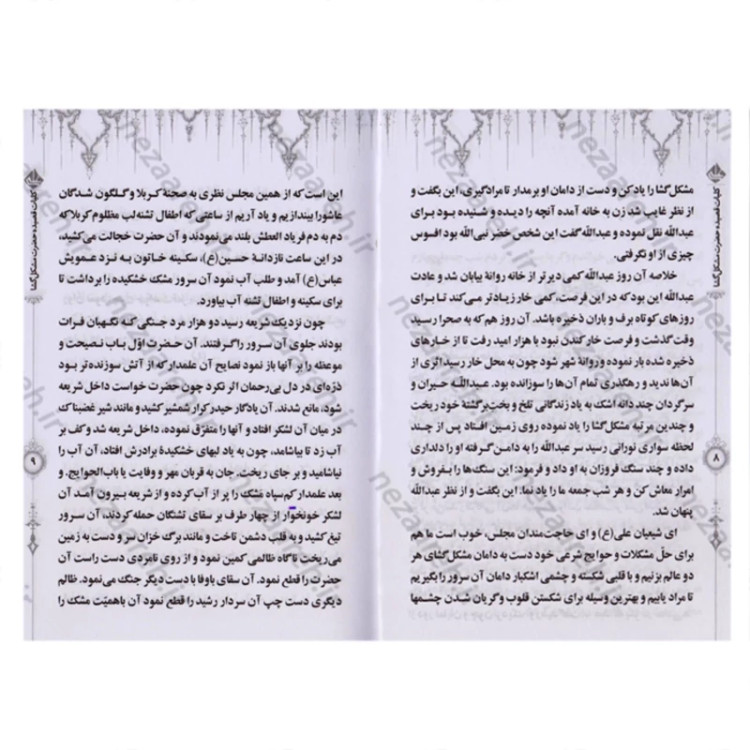 کلیات قصیده حضرت مشکل‌گشا
مشکل‌گشا را یاد کن و دست از دامان او برمدار تا مرادگیری، این بگفت و
از نظر غایب شد زن به خانه آمده آنچه را دیده و شنیده بود برای
عبدالله نقل نموده و عبدالله گفت این شخص خضر نبی‌الله بود افسوس
چیزی از او نگرفتی.
خلاصه آن روز عبدالله کمی دیرتر از خانه روانهٔ بیابان شد و عادت
عبدالله این بود که در این فرصت، کمی خار زیادتر می‌کند تا برای
روزهای کوتاه برف و باران ذخیره باشد. آن روز هم که به صحرا رسید
وقت گذشت و فرصت خار کندن نبود با هزار امید رفت تا از خارهای
ذخیره شده بار نموده و روانهٔ شهر شود چون به محل خار رسید اثری از
آن‌ها ندید و رهگذری تمام آن‌ها را سوزانده بود. عبدالله حیران و
سرگردان چند دانه اشک به یاد زندگانی تلخ و بخت برگشتهٔ خود ریخت
و چندین مرتبه مشکل‌گشا را یاد نموده روی زمین افتاد پس از چند
لحظه سواری نورانی رسید سر عبدالله را به دامن گرفته او را دلداری
داده و چند سنگ فروزان به او داد و فرمود: این سنگ‌ها را بفروش و
امرار معاش کن و هر شب جمعه ما را یاد نما. این بگفت و از نظر عبدالله
پنهان شد.
ای شیعیان علی(ع) و ای حاجت‌مندان مجلس، خوب است ما هم
برای حلّ مشکلات و حوایج شرعی خود دست به دامان مشکل‌گشای هر
دو عالم بزنیم و با قلبی شکسته و چشمی اشکبار دامان آن سرور را بگیریم
تا مراد یابیم و بهترین وسیله برای شکستن قلوب و گریان شدن چشمها
۸
کلیات قصیده حضرت مشکل‌گشا
این است که از همین مجلس نظری به صحنهٔ کربلا و گلگون شدگان
عاشورا بیندازیم و یاد آریم از ساعتی که اطفال تشنه‌لب مظلوم کربلا که
دم به دم فریاد العطش بلند می‌نمودند و آن حضرت خجالت می‌کشید،
در این ساعت نازدانهٔ حسین(ع)، سکینه خاتون به نزد عمویش
عباس(ع) آمد و طلب آب نمود آن سرور مشک خشکیده را برداشت تا
برای سکینه و اطفال تشنه آب بیاورد.
چون نزدیک شریعه رسید دو هزار مرد جنگی که نگهبان فرات
بودند جلوی آن سرور را گرفتند. آن حضرت اوّل باب نصیحت و
موعظه را بر آنها باز نمود نصایح آن علمدار که از آتش سوزنده‌تر بود
ذرّه‌ای در دل بی‌رحمان اثر نکرد چون حضرت خواست داخل شریعه
شود، مانع شدند. آن یادگار حیدر کرار شمشیر کشید و مانند شیر غضبناک
در میان آن لشکر افتاد و آنها را متفرّق نموده، داخل شریعه شد و کف بر
آب زد تا بیاشامد، چون به یاد لبهای خشکیدهٔ برادرش افتاد، آن آب را
نیاشامید و بر جای ریخت. جان به قربان مهر و وفایت یا باب‌الحوایج. و
بعد علمدار کم‌سپاه مشک را پر از آب کرده و از شریعه بیرون آمد آن
لشکر خونخوار از چهار طرف بر سقای تشنگان حمله کردند، آن سرور
تیغ کشید و به قلب دشمن تاخت و مانند برگ خزان سر و دست به زمین
می‌ریخت ناگاه ظالمی کمین نمود و از روی نامردی دست راست آن
حضرت را قطع نمود. آن سقای باوفا با دست دیگر جنگ می‌نمود. ظالم
دیگری دست چپ آن سردار رشید را قطع نمود آن باهمیّت مشک را
۹
nezaareh.ir